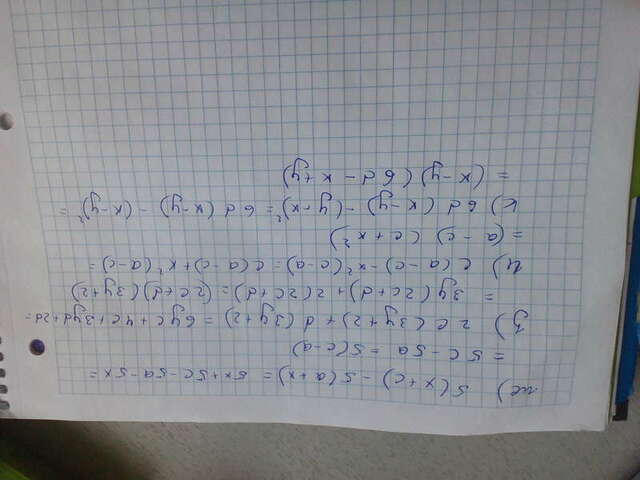 ж) 5(x+c) - 5(a+x) = 5x+5c-5a-5x =
= 5c - 5a = 5(c-a)
з) 2c(3y+2) + d(3y+2) = 6yc + 4c + 3yd + 2d =
= 3y(2c+d) + 2(2c+d) = (2c+d)(3y+2)
и) c(a-c) - x²(c-a) = c(a-c) + x²(a-c) =
= (a-c)(c+x²)
к) 6d(x-y) - (y+x)² = 6d(x-y) - (x-y)² =
= (x-y)(6d-x+y)